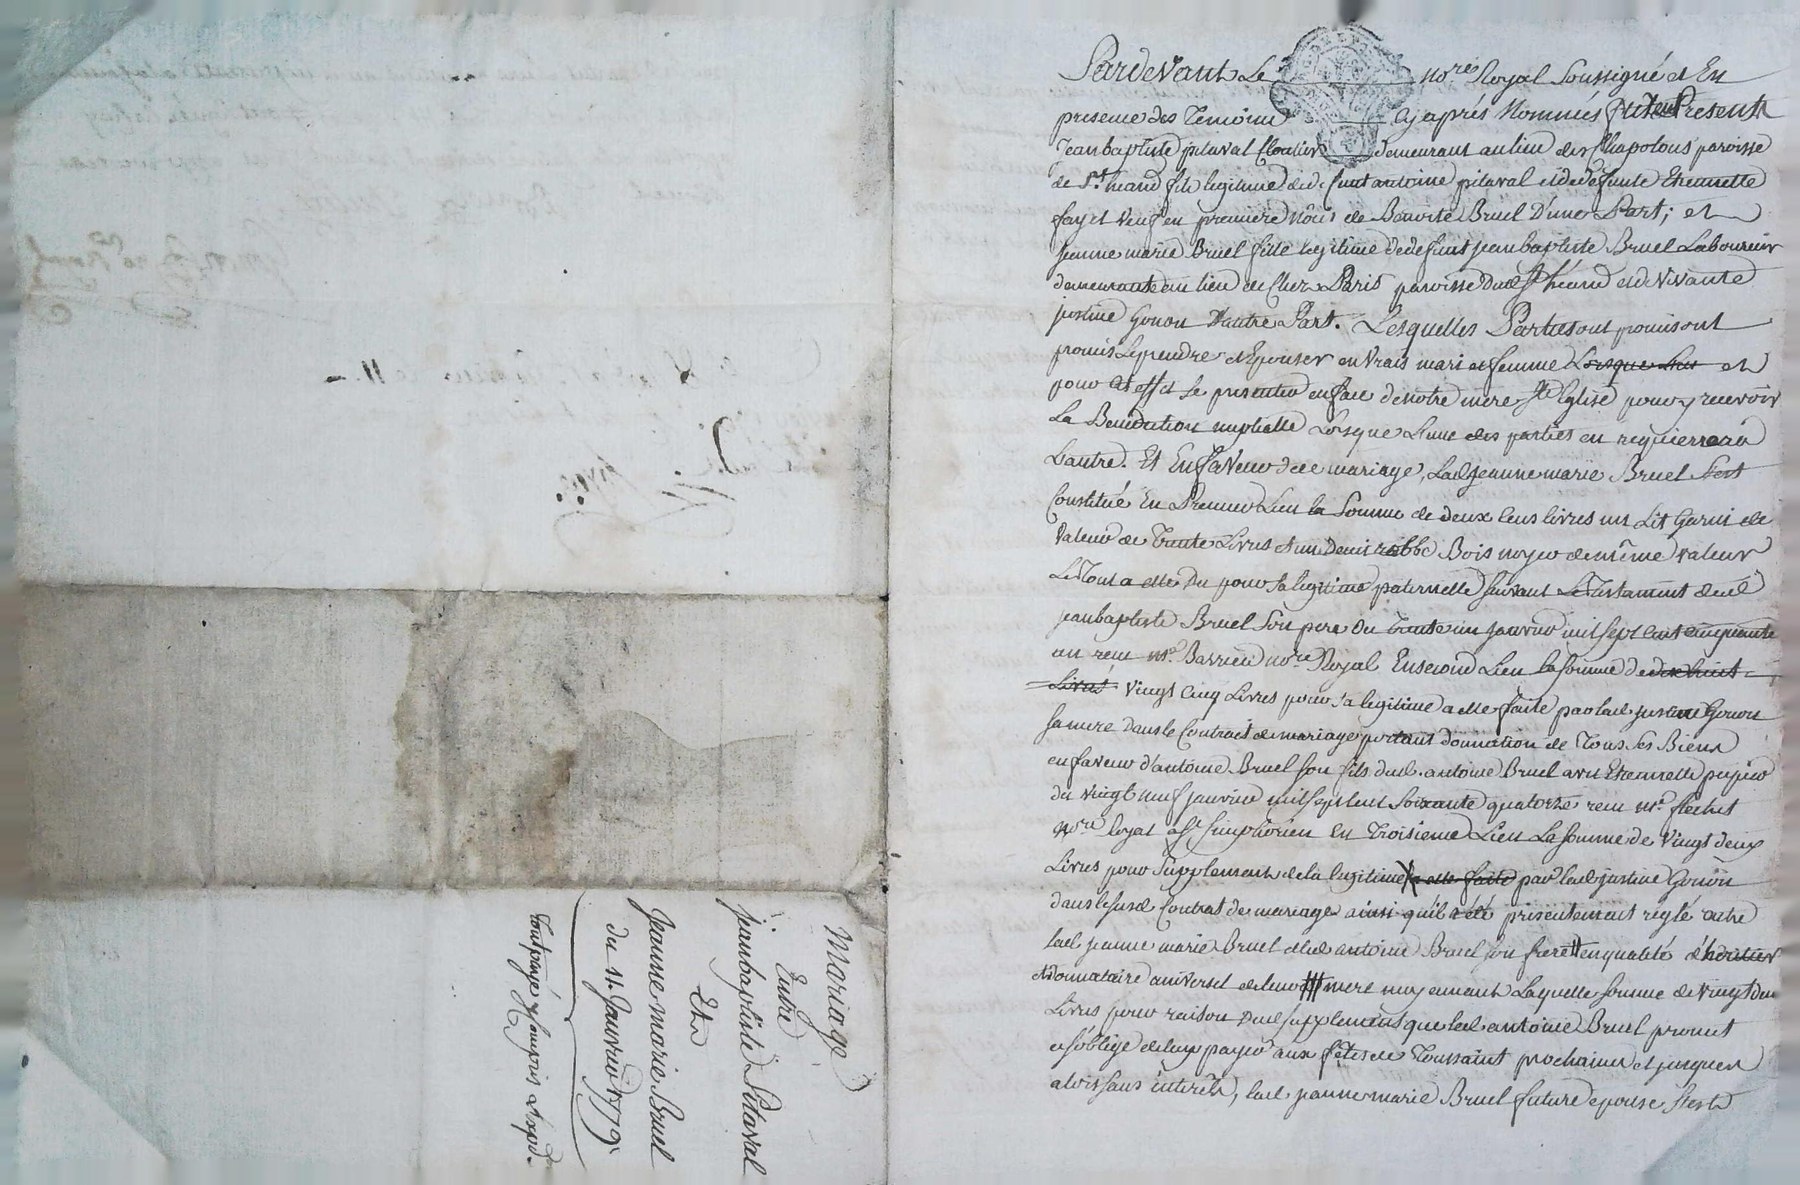 Pardevant Le nore Royal Soussigné et En
presence des Temoins cy aprés Nommés furent Present
Jean baptiste pitaval cloutier demeurant au lieu des Chapotous paroisse
de St. heand fils legitime de defunt antoine pitaval et de defunte Etiennette
fayet veuf en premiere nôces de Benoite Bruel D'une Part; et
jeanne marie Bruel fille legitime de defunt jean baptiste Bruel Laboureur
demeurante au lieu de Chez Paris paroisse dud. St héand et de vivante
justine Gonon D'autre Part. Lesquelles Parties ont promis ont
promis se prendre et Epouser en vrais mari et femme Lorsque Lun et
pour cet effet se presenter en face de notre mere Ste Eglise pour y recevoir
La Benediction nuptialle Lorsque L'une des parties en requierrera
L'autre. Et En faveur de ce mariage, Lad. jeanne marie Bruel s'est
Constitué En Premier Lieu la Somme de deux cens livres un Lit Garni de
valeur de Trente Livres et un Demi robbe Bois noyer de même valeur
Le Tout a elle Du pour sa legitime paternelle suivant Le Testament dud.
jean baptiste Bruel Son pere Du trente un janvier mil sept cent cinquante
un reçu me. Barrieu nore Royal En second Lieu la somme de dix huit
Livres vingt cinq Livres pour sa legitime a elle faite par lad. justine Gonon
sa mere Dans le Contract de mariage portant donnation de Tous Ses Biens
en faveur d'antoine Bruel son fils dud. antoine Bruel avec Etiennette
du vingt neuf janvier mil sept cent soixante quatorze reçu me.
nore Royal a St simphorien En Troisieme Lieu La somme de vingt deux
Livres pour Supplement de la legitime a elle faite par lad. justine Gonon
dans le susd. Contrat de mariage ainsi qu'il a été presentement reglé entre
lad. jeanne marie Bruel et led. antoine Bruel son frere en qualité d'heritier
et donnataire universel de leur mere moyennant Laquelle somme de vingt deux
Livres pour raison Dud. supplement que led. antoine Bruel promet
et s'oblige de luy payer aux fêtes de Toussaint prochaines et jusques
alors sans interêts, lad. jeanne marie Bruel future epouse s'est
Mariage
Entre
jean baptiste Pitaval
Et
Jeanne marie Bruel
du 11. Janvier 1779